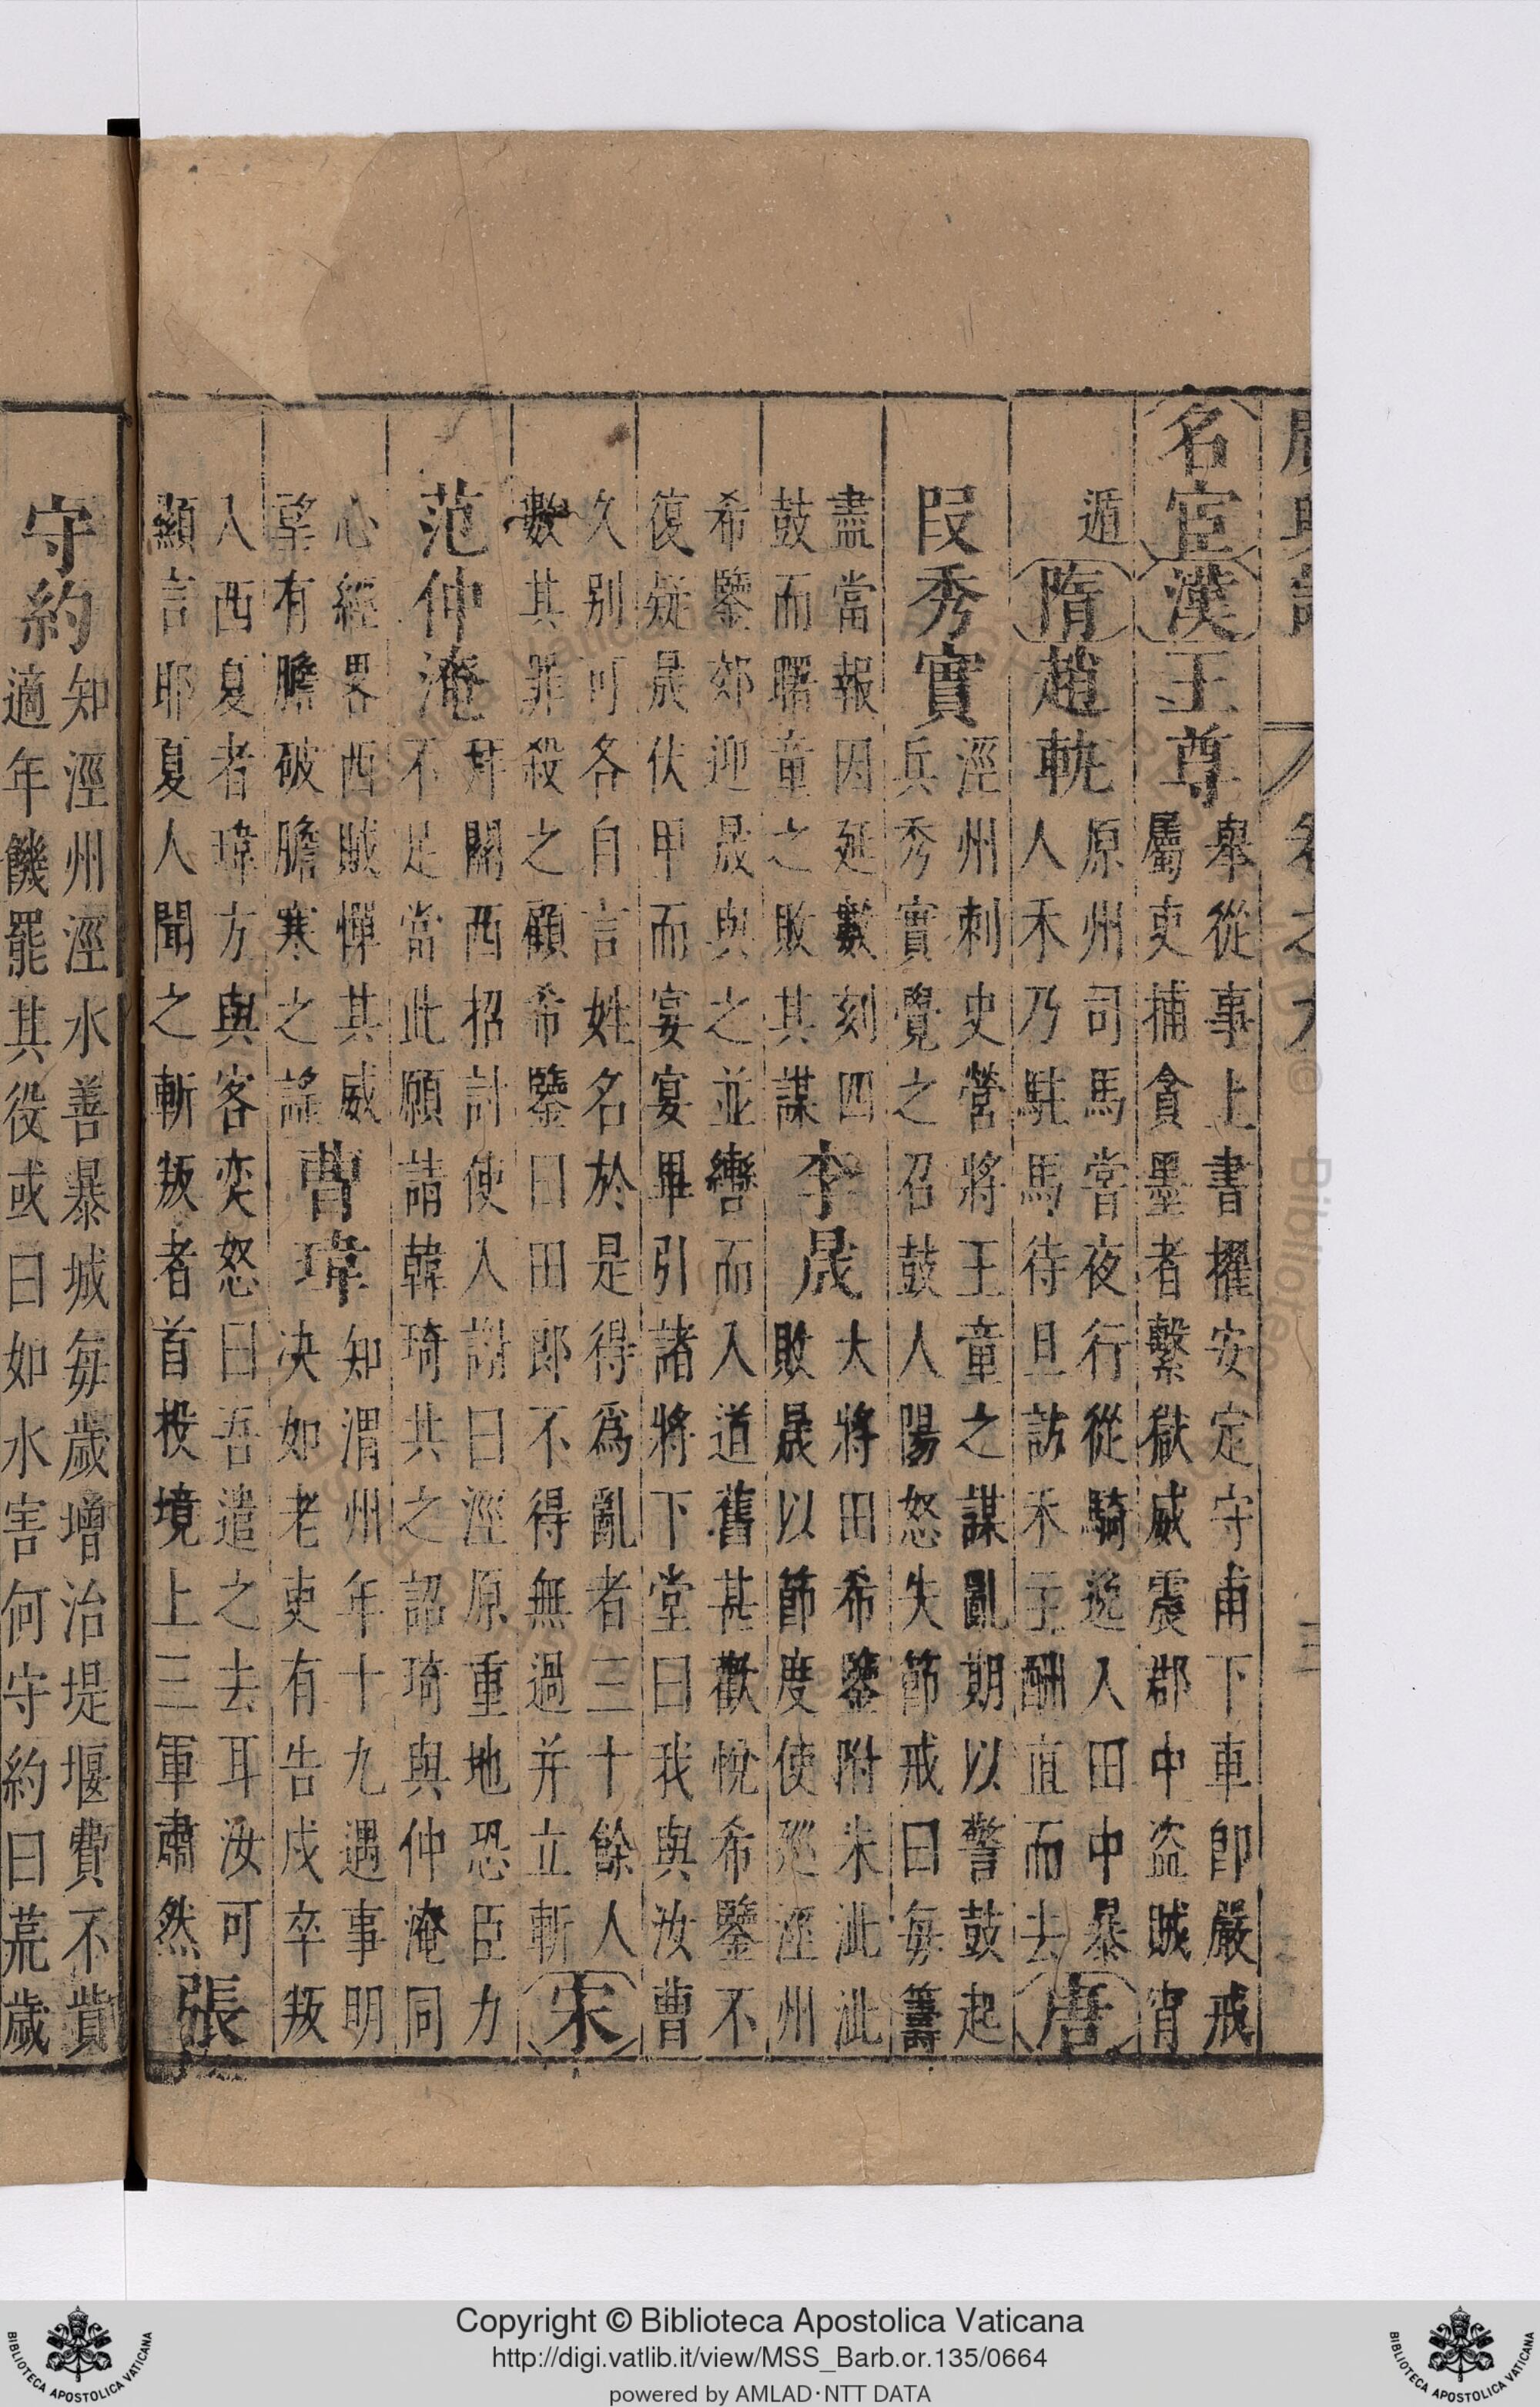 卷之
名宦漢王尊
舉從事上書擢安定守甫下車即嚴戒
屬吏捕貪墨者繫獄威震郡中盜賊宵
遁
隋趙軌
原州司馬嘗夜行從騎逸入田中暴
人禾乃駐馬待旦訪禾主酬直而去
唐
段秀實
涇州刺史營將王童之謀亂期以警鼓起
兵秀實覺之召鼓人陽怒失節戒曰每籌
盡當報因延數刻四
鼓而曙童之敗其謀
李晟
大將田希鑒附朱泚泚
敗晟以節度使廵涇州
希鑒郊迎晟與之並轡而入道舊甚歡悅希鑒不
復疑晟伏甲而宴宴畢引諸將下堂曰我與汝曹
久别可各自言姓名於是得爲亂者三十餘人
數其罪殺之顧希鑒曰田郎不得無過并立斬
宋
范仲淹
幷關西招討使入謝曰涇原重地恐臣力
不足當此願請韓琦共之詔琦與仲淹同
心經畧西賊憚其威
望有膽破膽寒之謠
曹瑋
知渭州年十九遇事明
决如老吏有告戍卒叛
入西夏者瑋方與客奕怒曰吾遣之去耳汝可
顯言耶夏人聞之斬叛者首投境上三軍肅然
張
守約
知涇州涇水善暴城每歲增治堤堰費不貲
適年饑罷其役或曰如水害何守約曰荒歲
Copyright © Biblioteca Apostolica Vaticana
http://digi.vatlib.it/view/MSS_Barb.or.135/0664
powered by AMLAD·NTT DATA
BIBLIOTECA APOSTOLICA VATICANA
BIBLIOTECA APOSTOLICA VATICANA